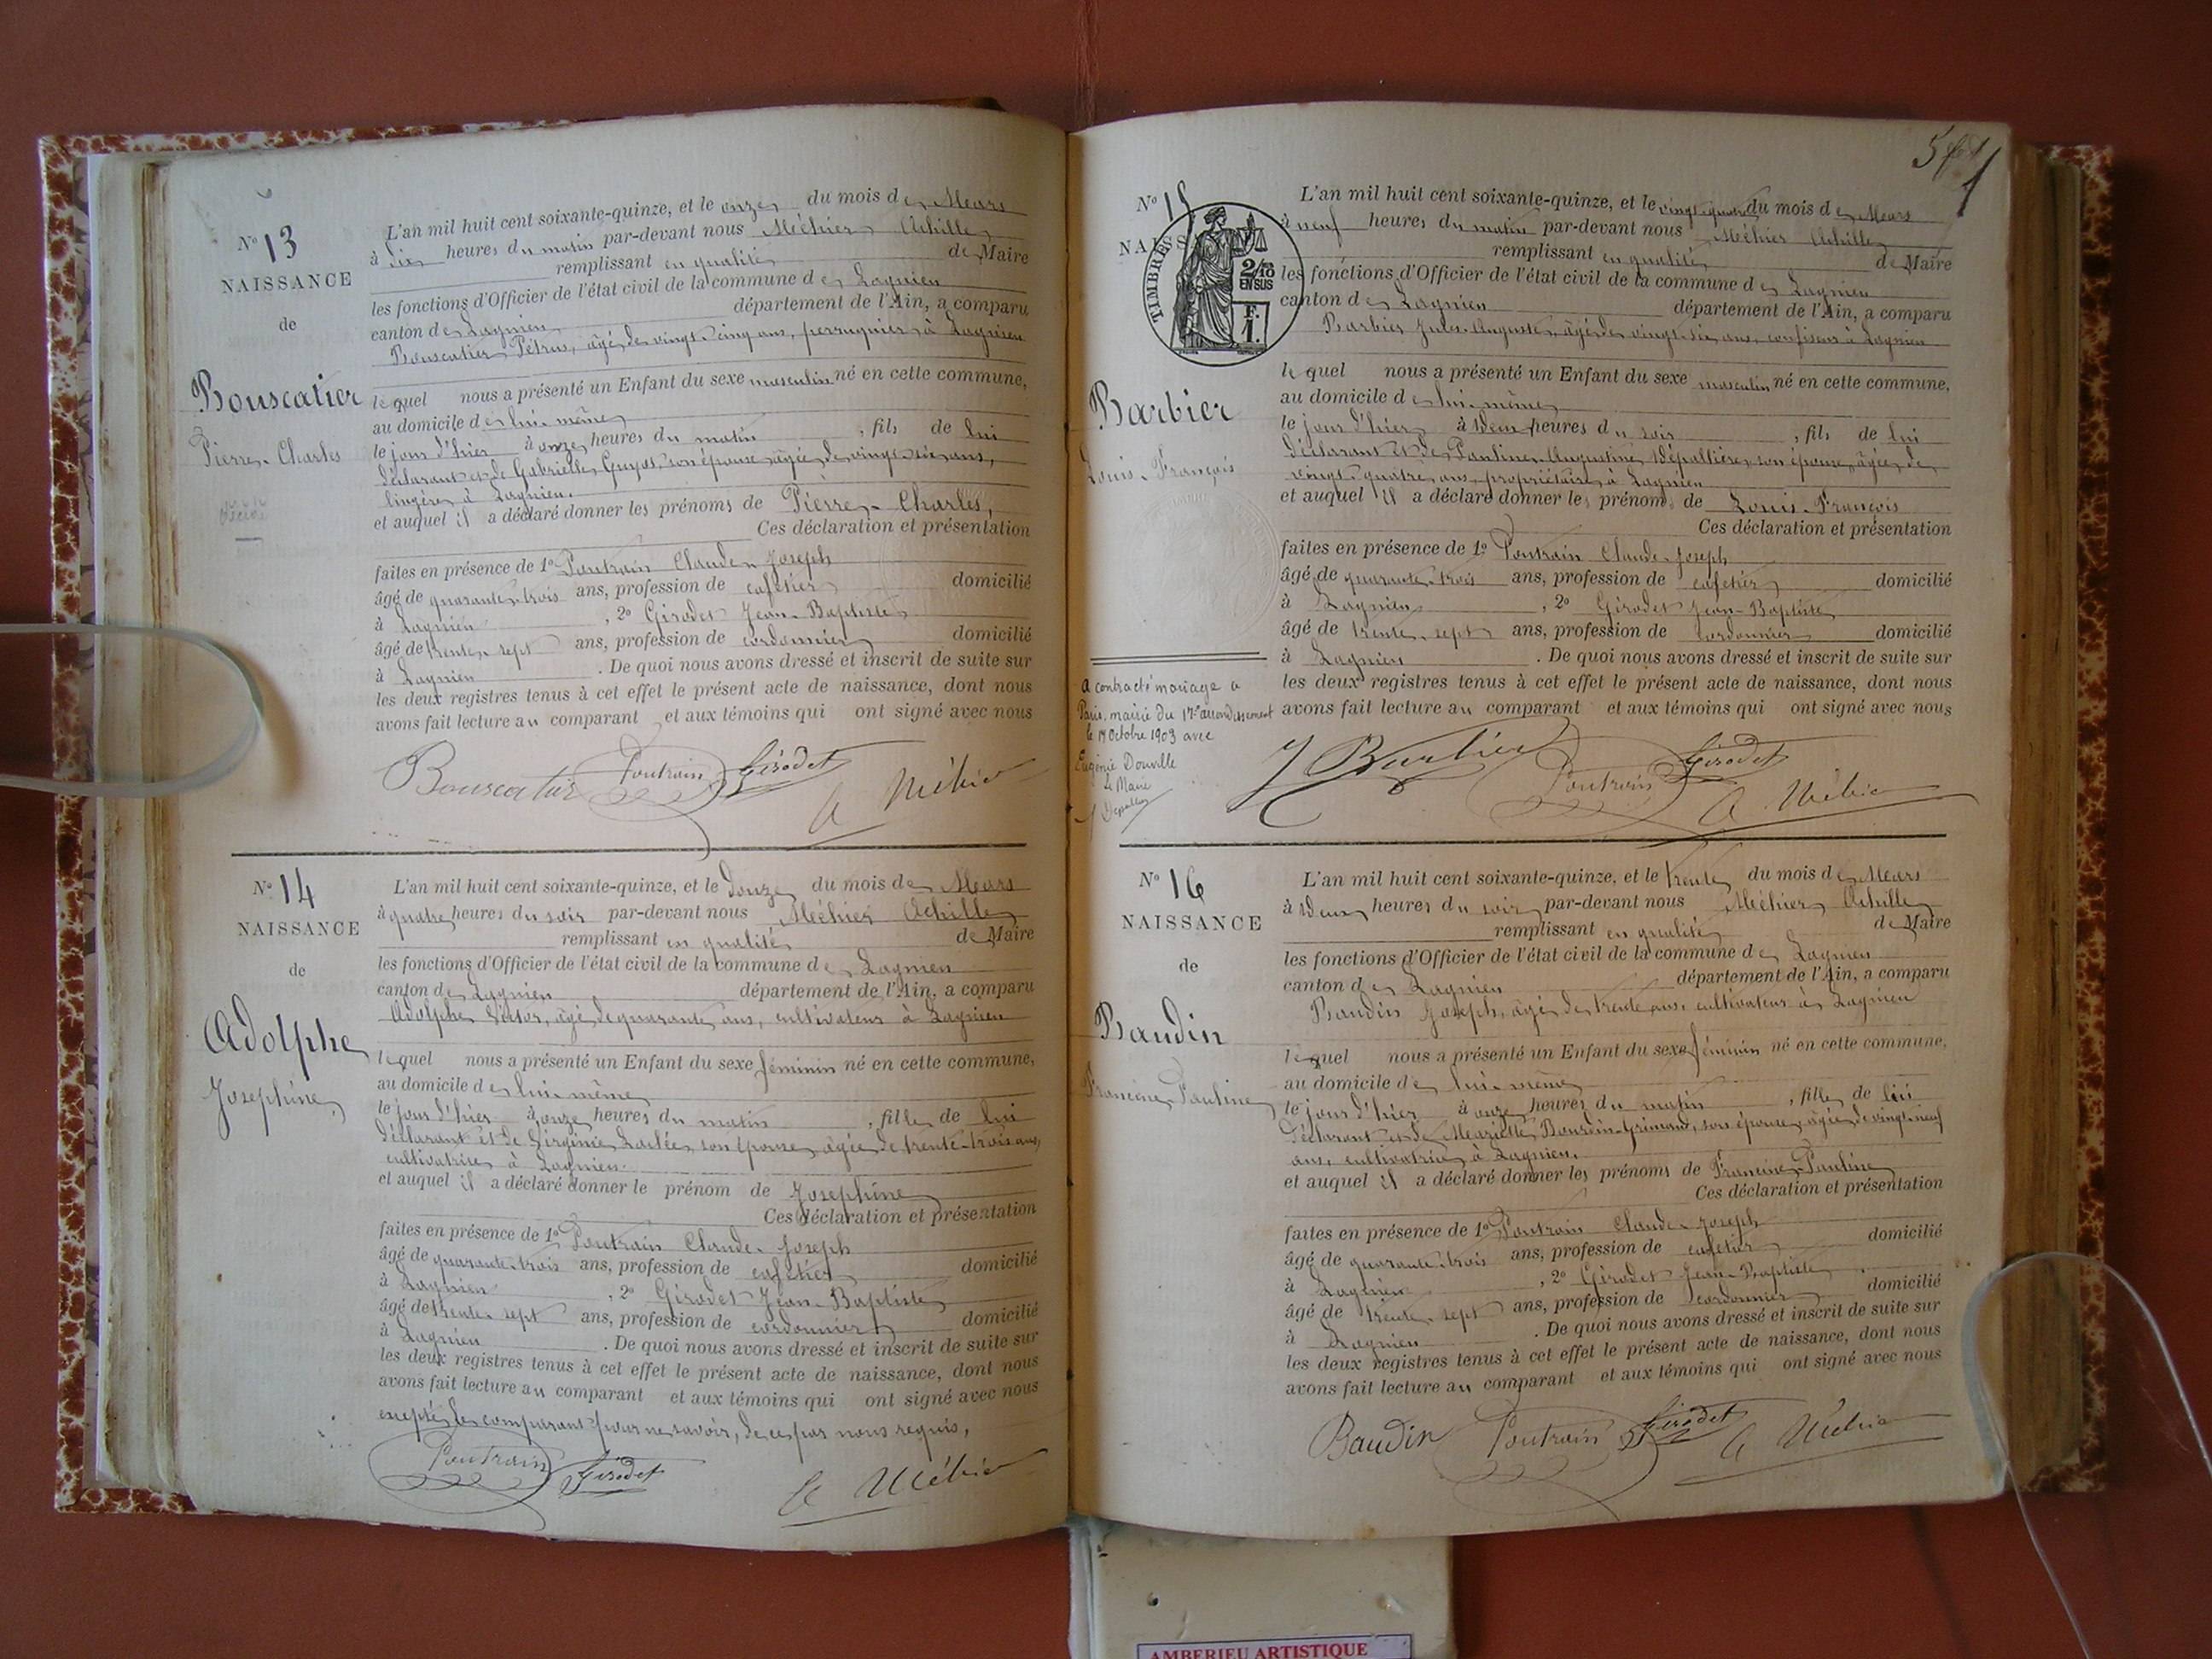 N° 13
NAISSANCE
de
Bouscatier
Pierre-Charles
L'an mil huit cent soixante-quinze, et le onze du mois de Mars
à dix heures du matin par-devant nous Méhier Achille
remplissant en qualité de Maire
les fonctions d'Officier de l'état civil de la commune de Lagnieu
canton de Lagnieu département de l'Ain, a comparu
Bouscatier Pétrus, âgé de vingt-cinq ans, perruquier à Lagnieu
lequel nous a présenté un Enfant du sexe masculin né en cette commune,
au domicile de lui-même
le jour d'hier à onze heures du matin, fils de lui
déclarant et de Gabrielle Guyot, son épouse âgée de vingt-six ans,
lingère à Lagnieu.
et auquel il a déclaré donner les prénoms de Pierre-Charles,
Ces déclaration et présentation
faites en présence de 1° Poutrain Claude-Joseph
âgé de quarante-trois ans, profession de cafetier domicilié
à Lagnieu, 2° Girodet Jean-Baptiste
âgé de trente-sept ans, profession de cordonnier domicilié
à Lagnieu. De quoi nous avons dressé et inscrit de suite sur
les deux registres tenus à cet effet le présent acte de naissance, dont nous
avons fait lecture au comparant et aux témoins qui ont signé avec nous
Bouscatier Poutrain Girodet A Méhier
N° 14
NAISSANCE
de
Adolphe
Joséphine
L'an mil huit cent soixante-quinze, et le douze du mois de Mars
à quatre heures du soir par-devant nous Méhier Achille
remplissant en qualité de Maire
les fonctions d'Officier de l'état civil de la commune de Lagnieu
canton de Lagnieu département de l'Ain, a comparu
Adolphe Victor, âgé de quarante ans, cultivateur à Lagnieu
lequel nous a présenté un Enfant du sexe féminin né en cette commune,
au domicile de lui-même
le jour d'hier à onze heures du matin, fille de lui
déclarant et de Virginie son épouse, âgée de trente-trois ans,
cultivatrice à Lagnieu.
et auquel il a déclaré donner le prénom de Joséphine
Ces déclaration et présentation
faites en présence de 1° Poutrain Claude-Joseph
âgé de quarante-trois ans, profession de cafetier domicilié
à Lagnieu, 2° Girodet Jean-Baptiste
âgé de trente-sept ans, profession de cordonnier domicilié
à Lagnieu. De quoi nous avons dressé et inscrit de suite sur
les deux registres tenus à cet effet le présent acte de naissance, dont nous
avons fait lecture au comparant et aux témoins qui ont signé avec nous
excepté le comparant pour ne savoir, de ce par nous requis,
Poutrain Girodet A Méhier
N° 15
NAISS
TIMBRES
2/10
EN SUS
F.
1.
Barbier
Louis-François
A contracté mariage à
Paris, mairie du 17e arrondissement
le 17 Octobre 1903 avec
Eugénie Douville
Le Maire
L'an mil huit cent soixante-quinze, et le vingt-quatre du mois de Mars
à neuf heures du matin par-devant nous Méhier Achille
remplissant en qualité de Maire
les fonctions d'Officier de l'état civil de la commune de Lagnieu
canton de Lagnieu département de l'Ain, a comparu
Barbier Jules-Auguste, âgé de vingt-six ans, confiseur à Lagnieu
lequel nous a présenté un Enfant du sexe masculin né en cette commune,
au domicile de lui-même
le jour d'hier à deux heures du soir, fils de lui
déclarant et de Pauline-Augustine Dépallière, son épouse, âgée de
vingt-quatre ans, propriétaire à Lagnieu
et auquel il a déclaré donner les prénoms de Louis-François
Ces déclaration et présentation
faites en présence de 1° Poutrain Claude-Joseph
âgé de quarante-trois ans, profession de cafetier domicilié
à Lagnieu, 2° Girodet Jean-Baptiste
âgé de trente-sept ans, profession de cordonnier domicilié
à Lagnieu. De quoi nous avons dressé et inscrit de suite sur
les deux registres tenus à cet effet le présent acte de naissance, dont nous
avons fait lecture au comparant et aux témoins qui ont signé avec nous
J Barbier Poutrain Girodet A Méhier
N° 16
NAISSANCE
de
Baudin
Francine-Pauline
L'an mil huit cent soixante-quinze, et le trente du mois de Mars
à deux heures du soir par-devant nous Méhier Achille
remplissant en qualité de Maire
les fonctions d'Officier de l'état civil de la commune de Lagnieu
canton de Lagnieu département de l'Ain, a comparu
Baudin Joseph, âgé de trente ans, cultivateur à Lagnieu
lequel nous a présenté un Enfant du sexe féminin né en cette commune,
au domicile de lui-même
le jour d'hier à onze heures du matin, fille de lui
déclarant et de Mariette Bourdin-Grimaud, son épouse, âgée de vingt-neuf
ans, cultivatrice à Lagnieu.
et auquel il a déclaré donner les prénoms de Francine-Pauline
Ces déclaration et présentation
faites en présence de 1° Poutrain Claude-Joseph
âgé de quarante-trois ans, profession de cafetier domicilié
à Lagnieu, 2° Girodet Jean-Baptiste
âgé de trente-sept ans, profession de cordonnier domicilié
à Lagnieu. De quoi nous avons dressé et inscrit de suite sur
les deux registres tenus à cet effet le présent acte de naissance, dont nous
avons fait lecture au comparant et aux témoins qui ont signé avec nous
Baudin Poutrain Girodet A Méhier
AMBERIEU ARTISTIQUE